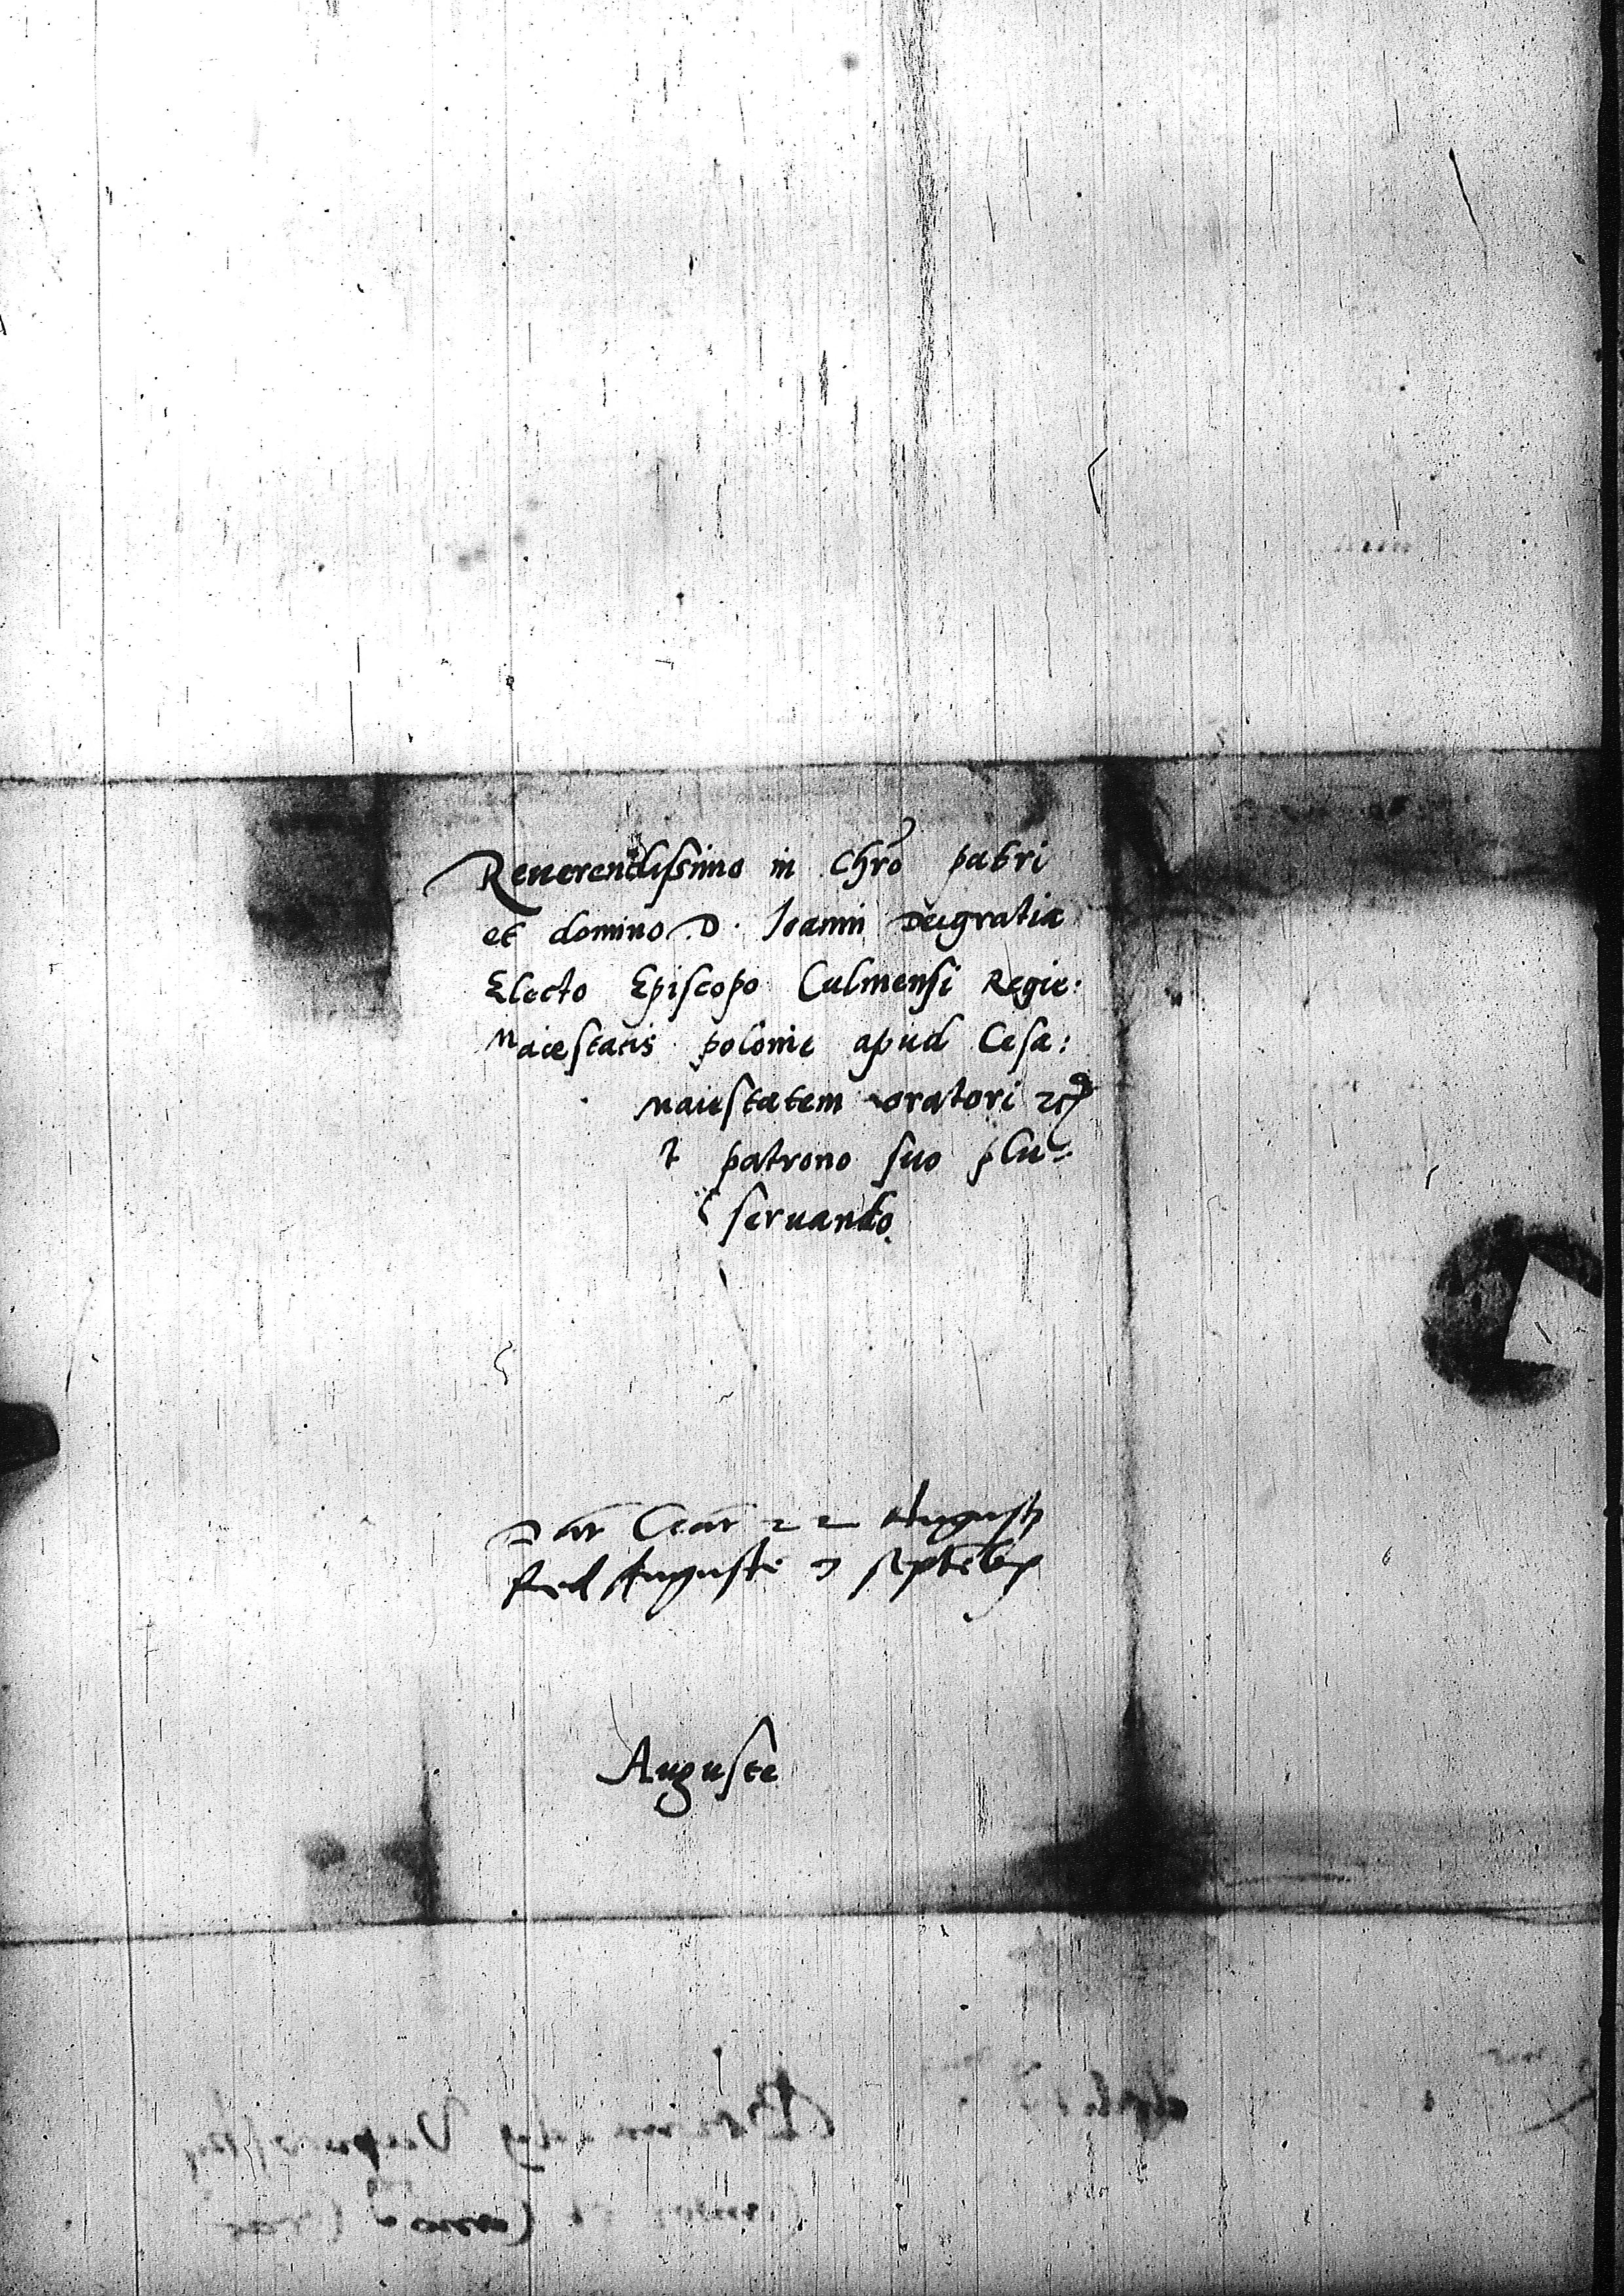 Reuerendissimo in Chr̃o patri
et domino D. Ioanni Dei gratia
Electo Episcopo Culmensi Regie:
Maiestatis polonie apud Cesa:
maiestatem oratori etc̃
et patrono suo plu=
seruando.
Dat̃ Crac̃ 22 Augusti
Red Auguste 7 septẽbr̃
Auguste